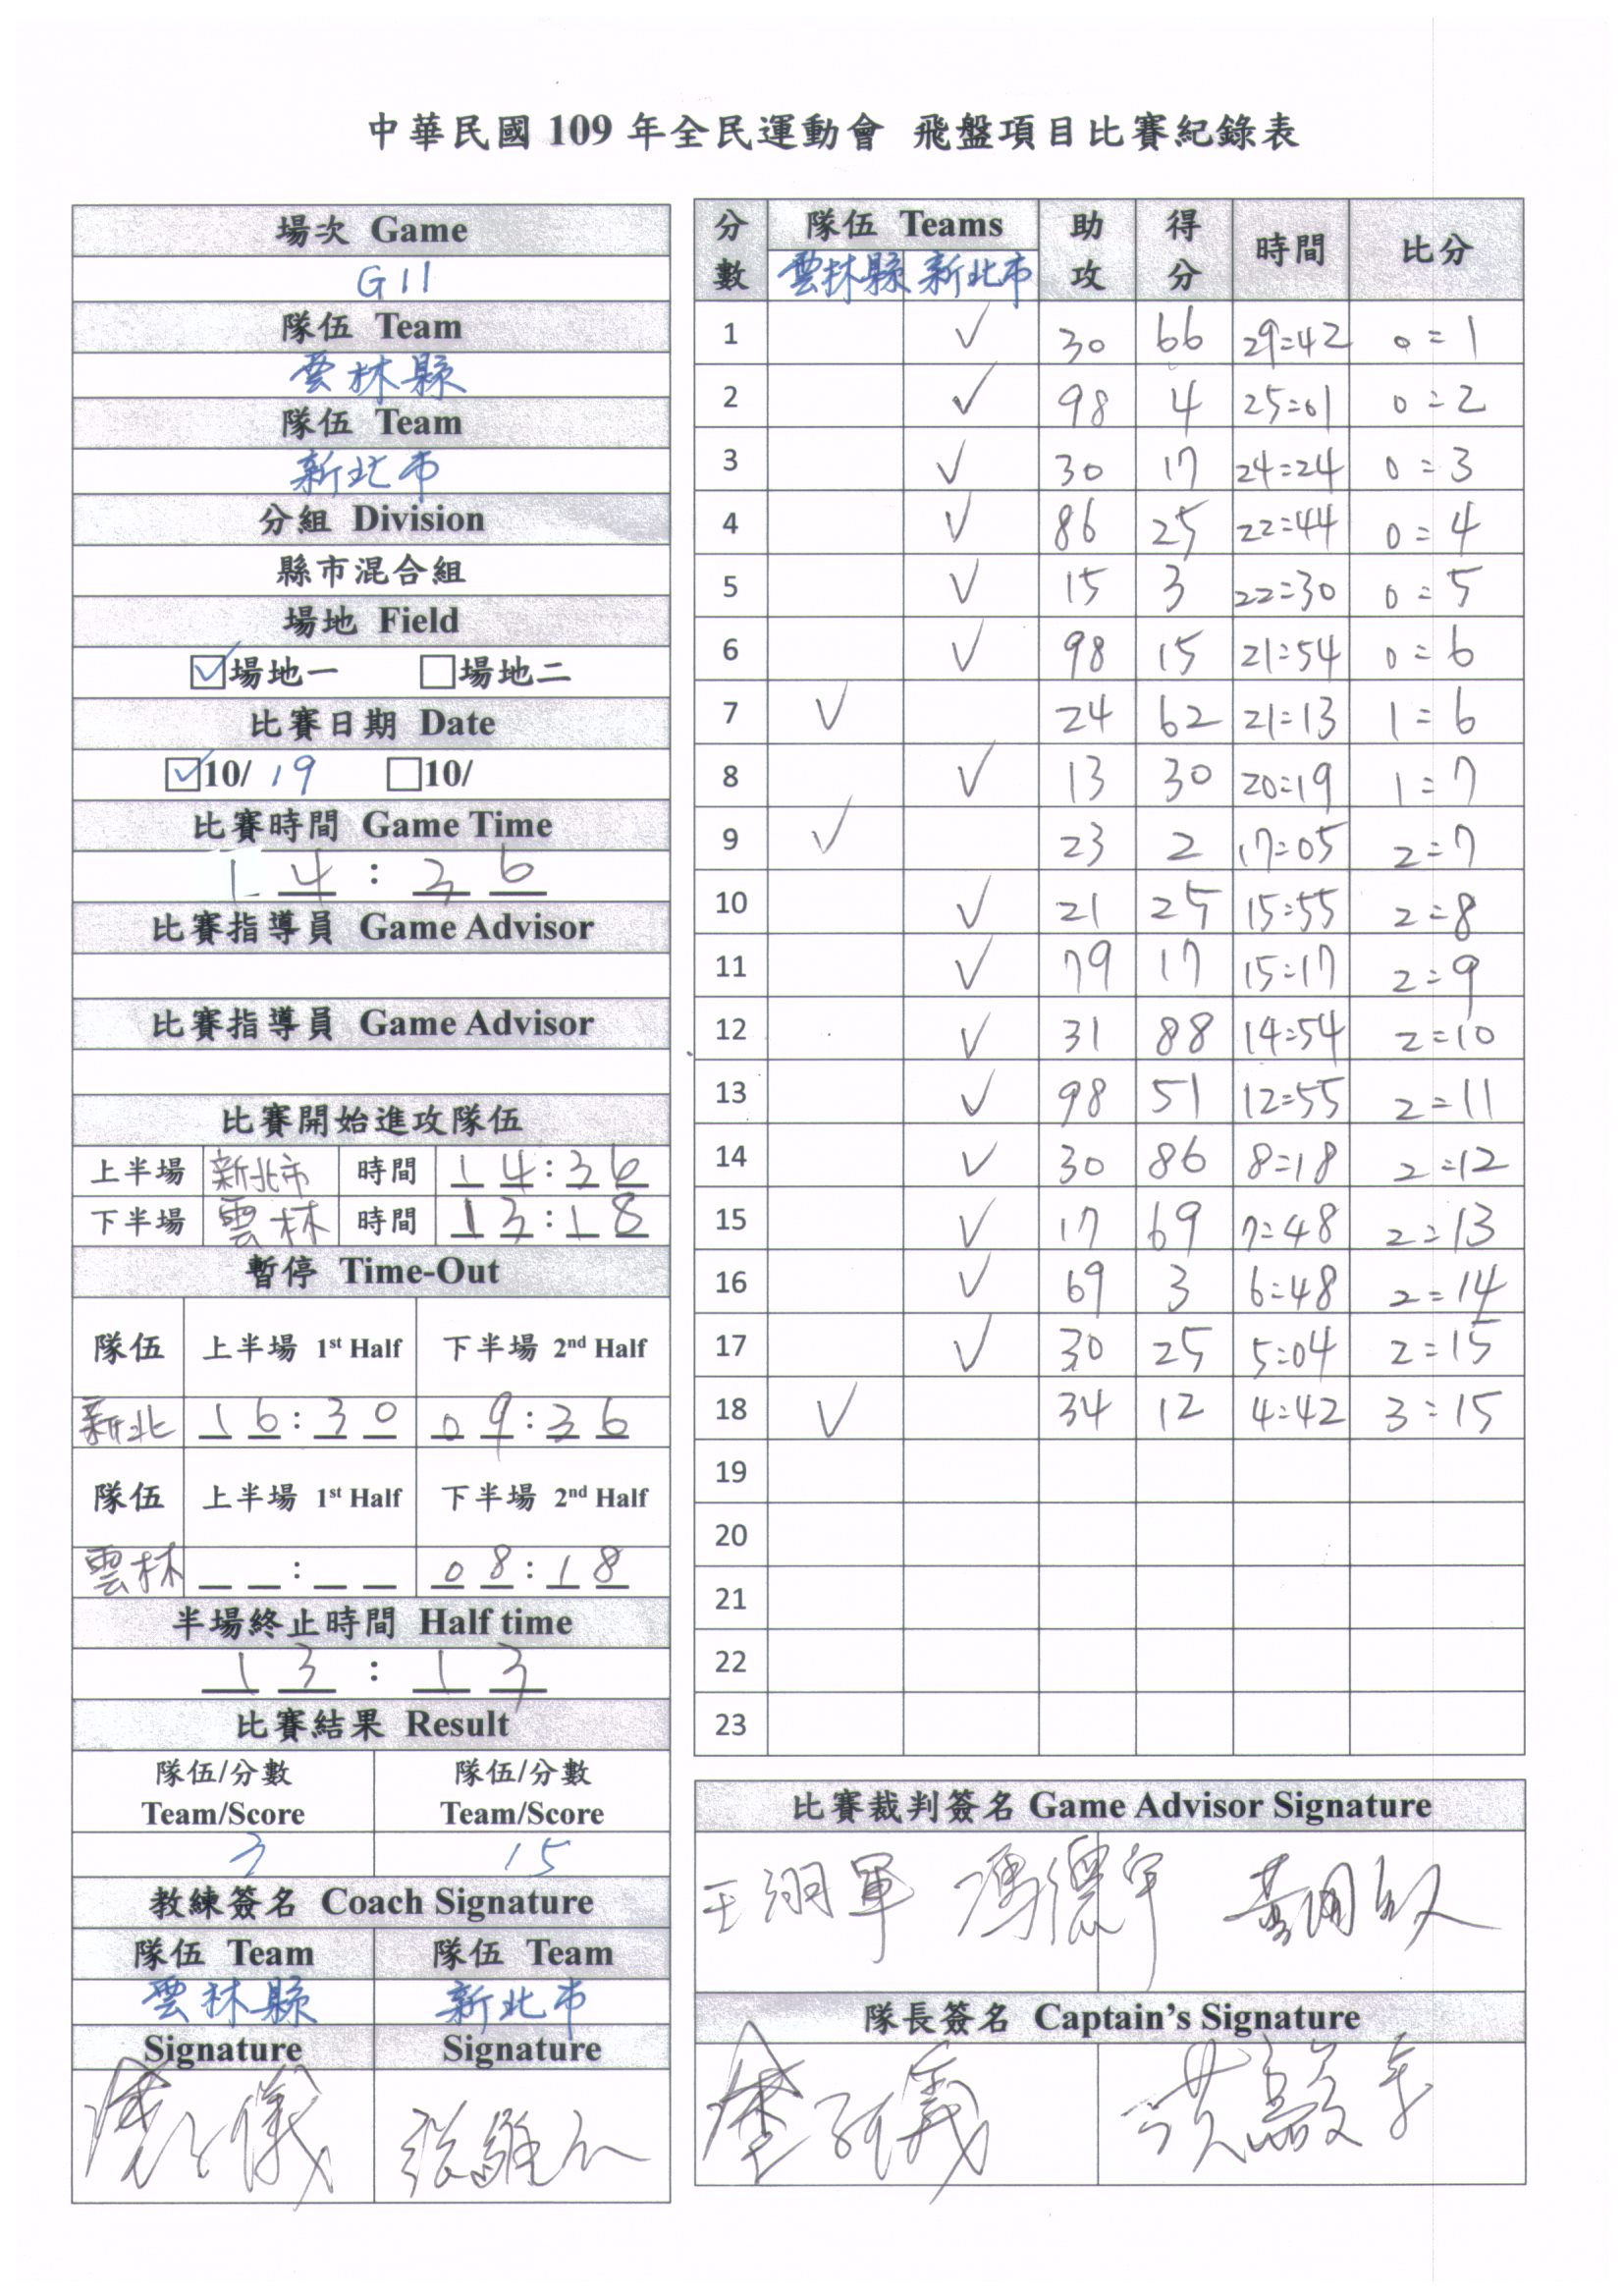 中華民國 109 年全民運動會 飛盤項目比賽紀錄表
場次 Game
G11
隊伍 Team
雲林縣
隊伍 Team
新北市
分組 Division
縣市混合組
場地 Field
☑場地一 ☐場地二
比賽日期 Date
☑10/ 19 ☐10/
比賽時間 Game Time
14:36
比賽指導員 Game Advisor
比賽指導員 Game Advisor
比賽開始進攻隊伍
上半場 新北市 時間 14:36
下半場 雲林 時間 13:18
暫停 Time-Out
隊伍 上半場 1st Half 下半場 2nd Half
新北 16:30 09:36
隊伍 上半場 1st Half 下半場 2nd Half
雲林 _ _:_ _ 08:18
半場終止時間 Half time
13:13
比賽結果 Result
隊伍/分數 隊伍/分數
Team/Score Team/Score
3 15
教練簽名 Coach Signature
隊伍 Team 隊伍 Team
雲林縣 新北市
Signature Signature
分數 隊伍 Teams 助攻 得分 時間 比分
雲林縣 新北市
1 ✓ 30 66 29:42 0:1
2 ✓ 98 4 25:01 0:2
3 ✓ 30 17 24:24 0:3
4 ✓ 86 25 22:44 0:4
5 ✓ 15 3 22:30 0:5
6 ✓ 98 15 21:54 0:6
7 ✓ 24 62 21:13 1:6
8 ✓ 13 30 20:19 1:7
9 ✓ 23 2 17:05 2:7
10 ✓ 21 25 15:55 2:8
11 ✓ 79 17 15:17 2:9
12 ✓ 31 88 14:54 2:10
13 ✓ 98 51 12:55 2:11
14 ✓ 30 86 8:18 2:12
15 ✓ 17 69 7:48 2:13
16 ✓ 69 3 6:48 2:14
17 ✓ 30 25 5:04 2:15
18 ✓ 34 12 4:42 3:15
19
20
21
22
23
比賽裁判簽名 Game Advisor Signature
隊長簽名 Captain's Signature